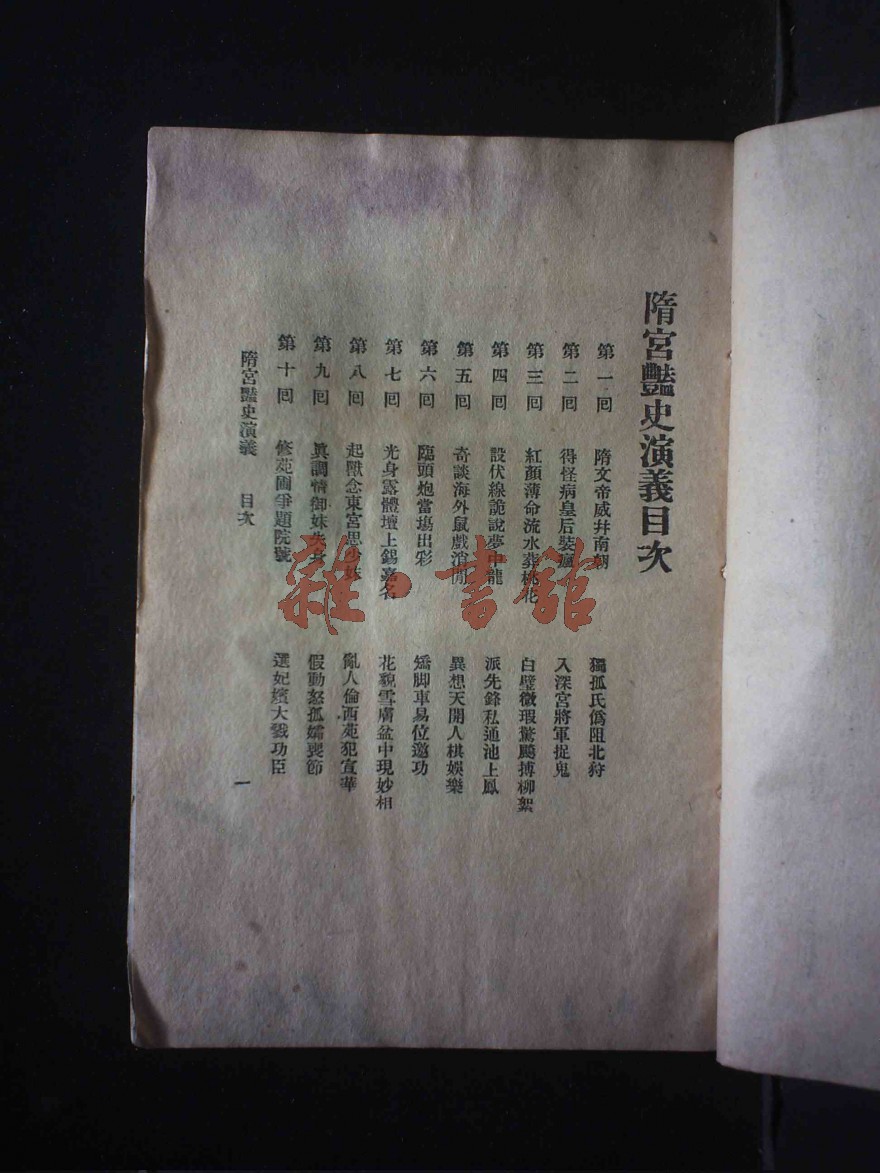 隋宮豔史演義目次
第一回 隋文帝威幷南朝 獨孤氏僞阻北狩
第二回 得怪病皇后裝瘋 入深宮將軍捉鬼
第三回 紅顏薄命流水葬桃花 白璧微瑕驚颺搏柳絮
第四回 設伏線詭說夢中龍 派先鋒私通池上鳳
第五回 奇談海外鼠戲消閒 異想天開人棋娛樂
第六回 臨頭炮當塲出彩 矯脚車易位邀功
第七回 光身露體壇上錫嘉名 花貌雪膚盆中現妙相
第八回 起獸念東宮思少妹 亂人倫西苑犯宣華
第九回 眞調情御妹失身 假動怒孤孀喪節
第十回 修苑囿爭題院號 選妃嬪大戮功臣
隋宮豔史演義 目次 一
雜·書館